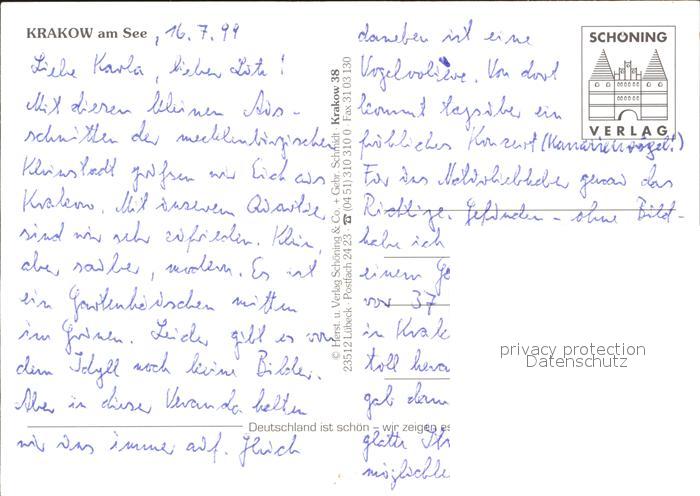 KRAKOW am See , 16.7.99
Liebe Karla, lieber Lutz!
Mit diesen kleinen Aus-
schnitten der mecklenburgischen
Kleinstadt grüßen wir Euch aus
Krakow. Mit unserem Quartier
sind wir sehr zufrieden. Klein,
aber sauber, modern. Es ist
ein Gartenhäuschen mitten
im Grünen. Leider gibt es von
dem Idyll noch keine Bilder.
Aber in dieser Veranda halten
wir uns immer auf. Gleich
© Herst. u. Verlag Schöning & Co. + Gebr. Schmidt Krakow 38
23512 Lübeck · Postfach 24 23 ☎ (04 51) 310 310 0 Fax 31 03 130
Deutschland ist schön – wir zeigen es
daneben ist eine
Vogelvoliere. Von dort
kommt tagsüber ein
fröhliches Konzert (Kanarienvögel!)
Für uns Naturliebhaber genau das
Richtige. Gefunden – ohne Bild-
habe ich
einem
vor 37
in
toll
gab
glatte
SCHÖNING
VERLAG
privacy protection
Datenschutz